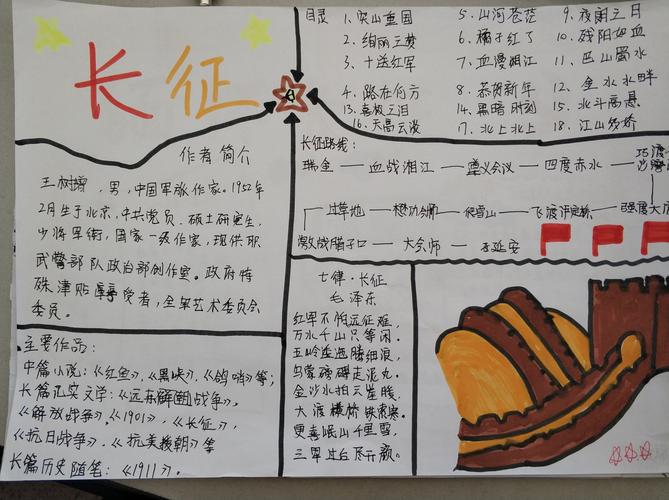 长征
目录
1、突山重围 5、山河苍茫 9、夜阑三日
2、绚丽之梦 6、橘子红了 10、残阳如血
3、十送红军 7、血漫湘江 11、巴山蜀水
4、路在何方 8、恭贺新年 12、金水水畔
13、喜极之泪 14、黑暗时刻 15、北斗高悬
16、天高云淡 17、北上北上 18、江山多娇
作者简介
王树增，男，中国军旅作家。1952年
2月生于北京，中共党员，硕士研究生，
少将军衔，国家一级作家，现供职
武警部队政治部创作室。政府特
殊津贴享受者，全军艺术委员会
委员。
长征路线：
瑞金—血战湘江—遵义会议—四度赤水—巧渡
过草地—懋功会师—爬雪山—飞渡泸定桥—强渡大
激战腊子口—大会师—到延安
主要作品：
中篇小说：《红鱼》、《黑峡》、《鸽哨》等；
长篇纪实文学：《远东朝鲜战争》，
《解放战争》、《1901》、《长征》，
《抗日战争》、《抗美援朝》等
长篇历史随笔：《1911》。
七律·长征
毛泽东
红军不怕远征难，
万水千山只等闲。
五岭逶迤腾细浪，
乌蒙磅礴走泥丸。
金沙水拍云崖暖，
大渡横桥铁索寒。
更喜岷山千里雪，
三军过后尽开颜。